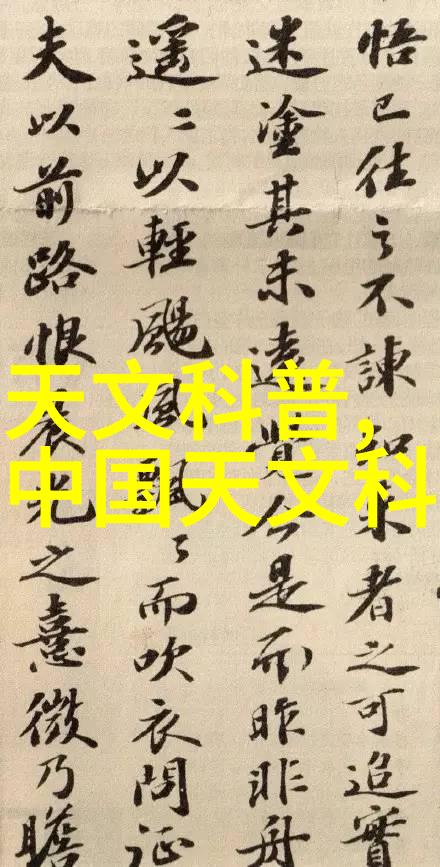 悟已往之不諫知来者之可追實
迷塗其未遠覺今是而昨非舟
遥〻以輕颺風飄〻而吹衣問征
夫以前路恨晨光之熹微乃瞻
天文科普,
中国天文科